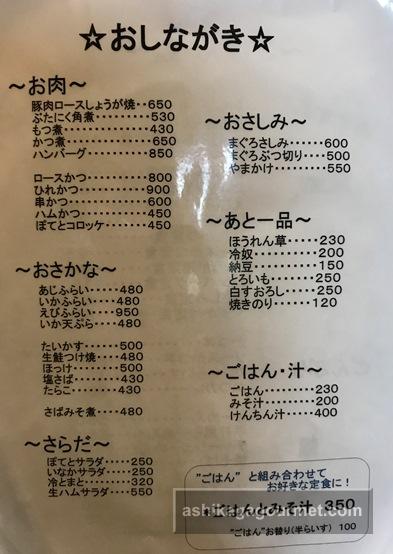 ☆おしながき☆
～お肉～
豚肉ロースしょうが焼・・650
ぶたにく角煮・・・・・・・・・530
もつ煮・・・・・・・・・・・・430
かつ煮・・・・・・・・・・・・650
ハンバーグ・・・・・・・・・850
ロースかつ・・・・・・・・800
ひれかつ・・・・・・・・・900
串かつ・・・・・・・・・・・600
ハムかつ・・・・・・・・・450
ぽてとコロッケ・・・・・・450
～おさかな～
あじふらい・・・・・・480
いかふらい・・・・・480
えびふらい・・・・・950
いか天ぷら・・・480
たいかす・・・・・・500
生鮭つけ焼・・・480
ほっけ・・・・・・・・500
塩さば・・・・・・・・430
たらこ・・・・・・・・430
さばみそ煮・・・・480
～さらだ～
ぽてとサラダ・・・・・250
いなかサラダ・・・・・250
冷とまと・・・・・・・・320
生ハムサラダ・・・・・550
～おさしみ～
まぐろさしみ・・・・・・・600
まぐろぶつ切り・・・・500
やまかけ・・・・・・・・・・550
～あと一品～
ほうれん草・・・・・230
冷奴・・・・・・・・・・200
納豆・・・・・・・・・・150
とろいも・・・・・・・250
白すおろし・・・・・250
焼きのり・・・・・・120
～ごはん・汁～
ごはん・・・・・・・・・230
みそ汁・・・・・・・・・200
けんちん汁・・・・・400
"ごはん" と組み合わせて
お好きな定食に！
★ごはんとみそ汁 350
"ごはん"お替り(半らいす) 100
ashikagagourmet.com